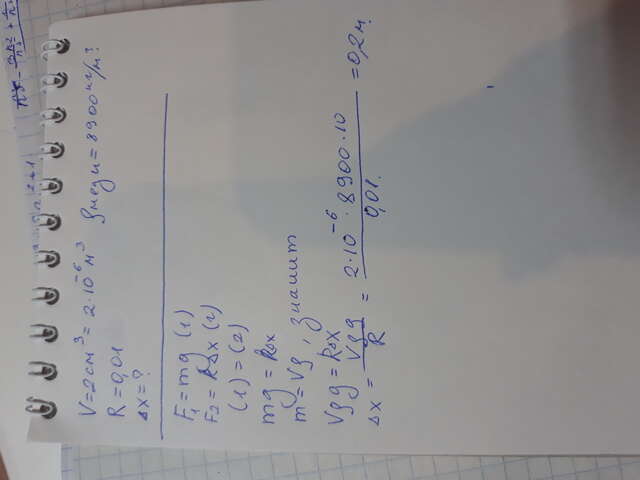 V=2см³=2·10⁻⁶м³ ρмеди=8900кг/м³
R=0,01
Δx=?
F₁=mg (1)
F₂=RΔx (2)
(1)=(2)
mg=RΔx
m=Vρ, значит
Vρg=RΔx
Δx = Vρg/R = 2·10⁻⁶·8900·10/0,01 =0,2м